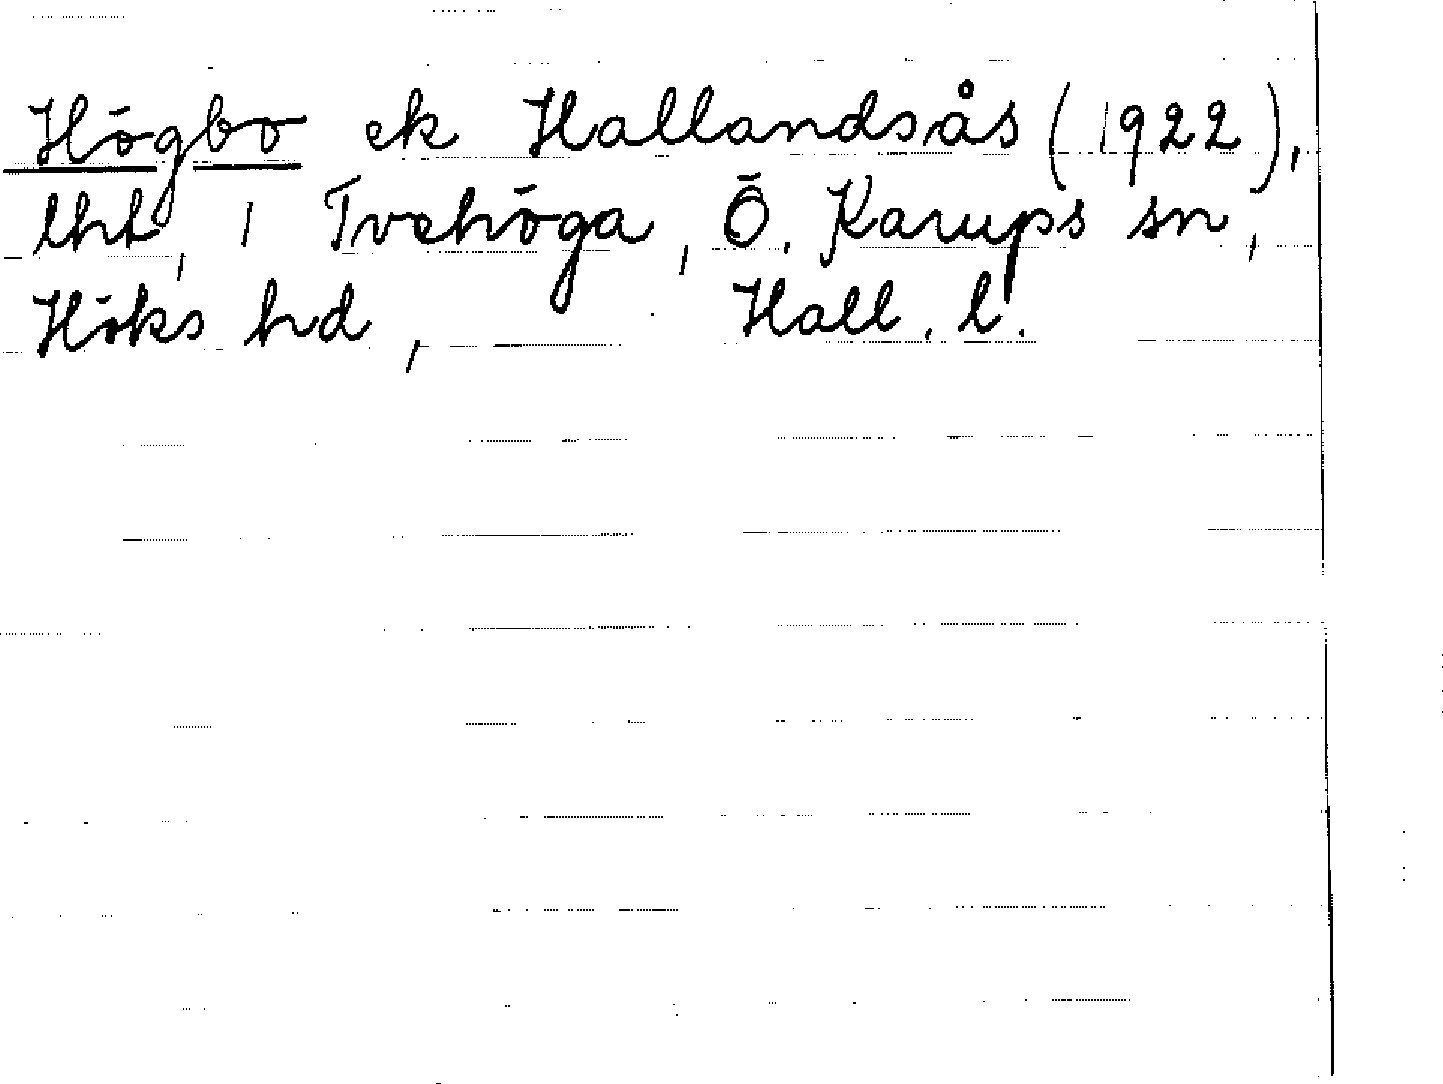 Högbo ek Hallandsås (1922),
lht, i Tvehöga, Ö. Karups sn,
Höks hd, Hall. l.